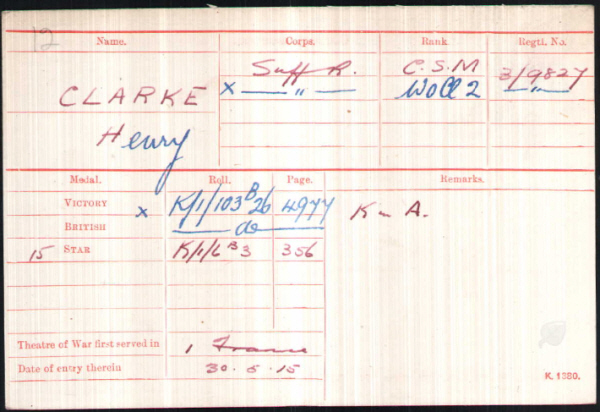 12
Name. Corps. Rank Regtl. No.
Suff R. C.S.M 3/9827
CLARKE x — " — WOCl 2 — " —
Henry
Medal. Roll. Page. Remarks.
VICTORY x K/1/103 B 26 4977 K in A.
BRITISH — do —
15 STAR K/1/6 B 3 356
Theatre of War first served in 1 France
Date of entry therein 30.5.15
K. 1380.